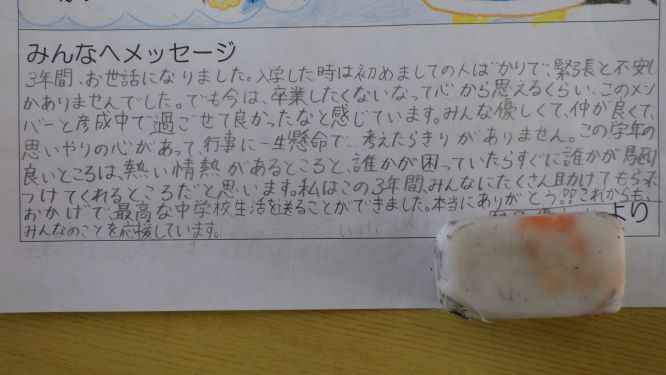 みんなへメッセージ
3年間、お世話になりました。入学した時は初めましての人ばかりで、緊張と不安し
かありませんでした。でも今は、卒業したくないなって心から思えるくらい、このメン
バーと彦成中で過ごせて良かったなと感じています。みんな優しくて、仲が良くて、
思いやりの心があって、行事に一生懸命で… 考えたらきりがありません。この学年の
良いところは、熱い情熱があるところと、誰かが困っていたらすぐに誰かが駆け
つけてくれるところだと思います。私はこの3年間、みんなにたくさん助けてもらった
おかげで、最高な中学校生活を送ることができました。本当にありがとう。これからも、
みんなのことを応援しています。
より